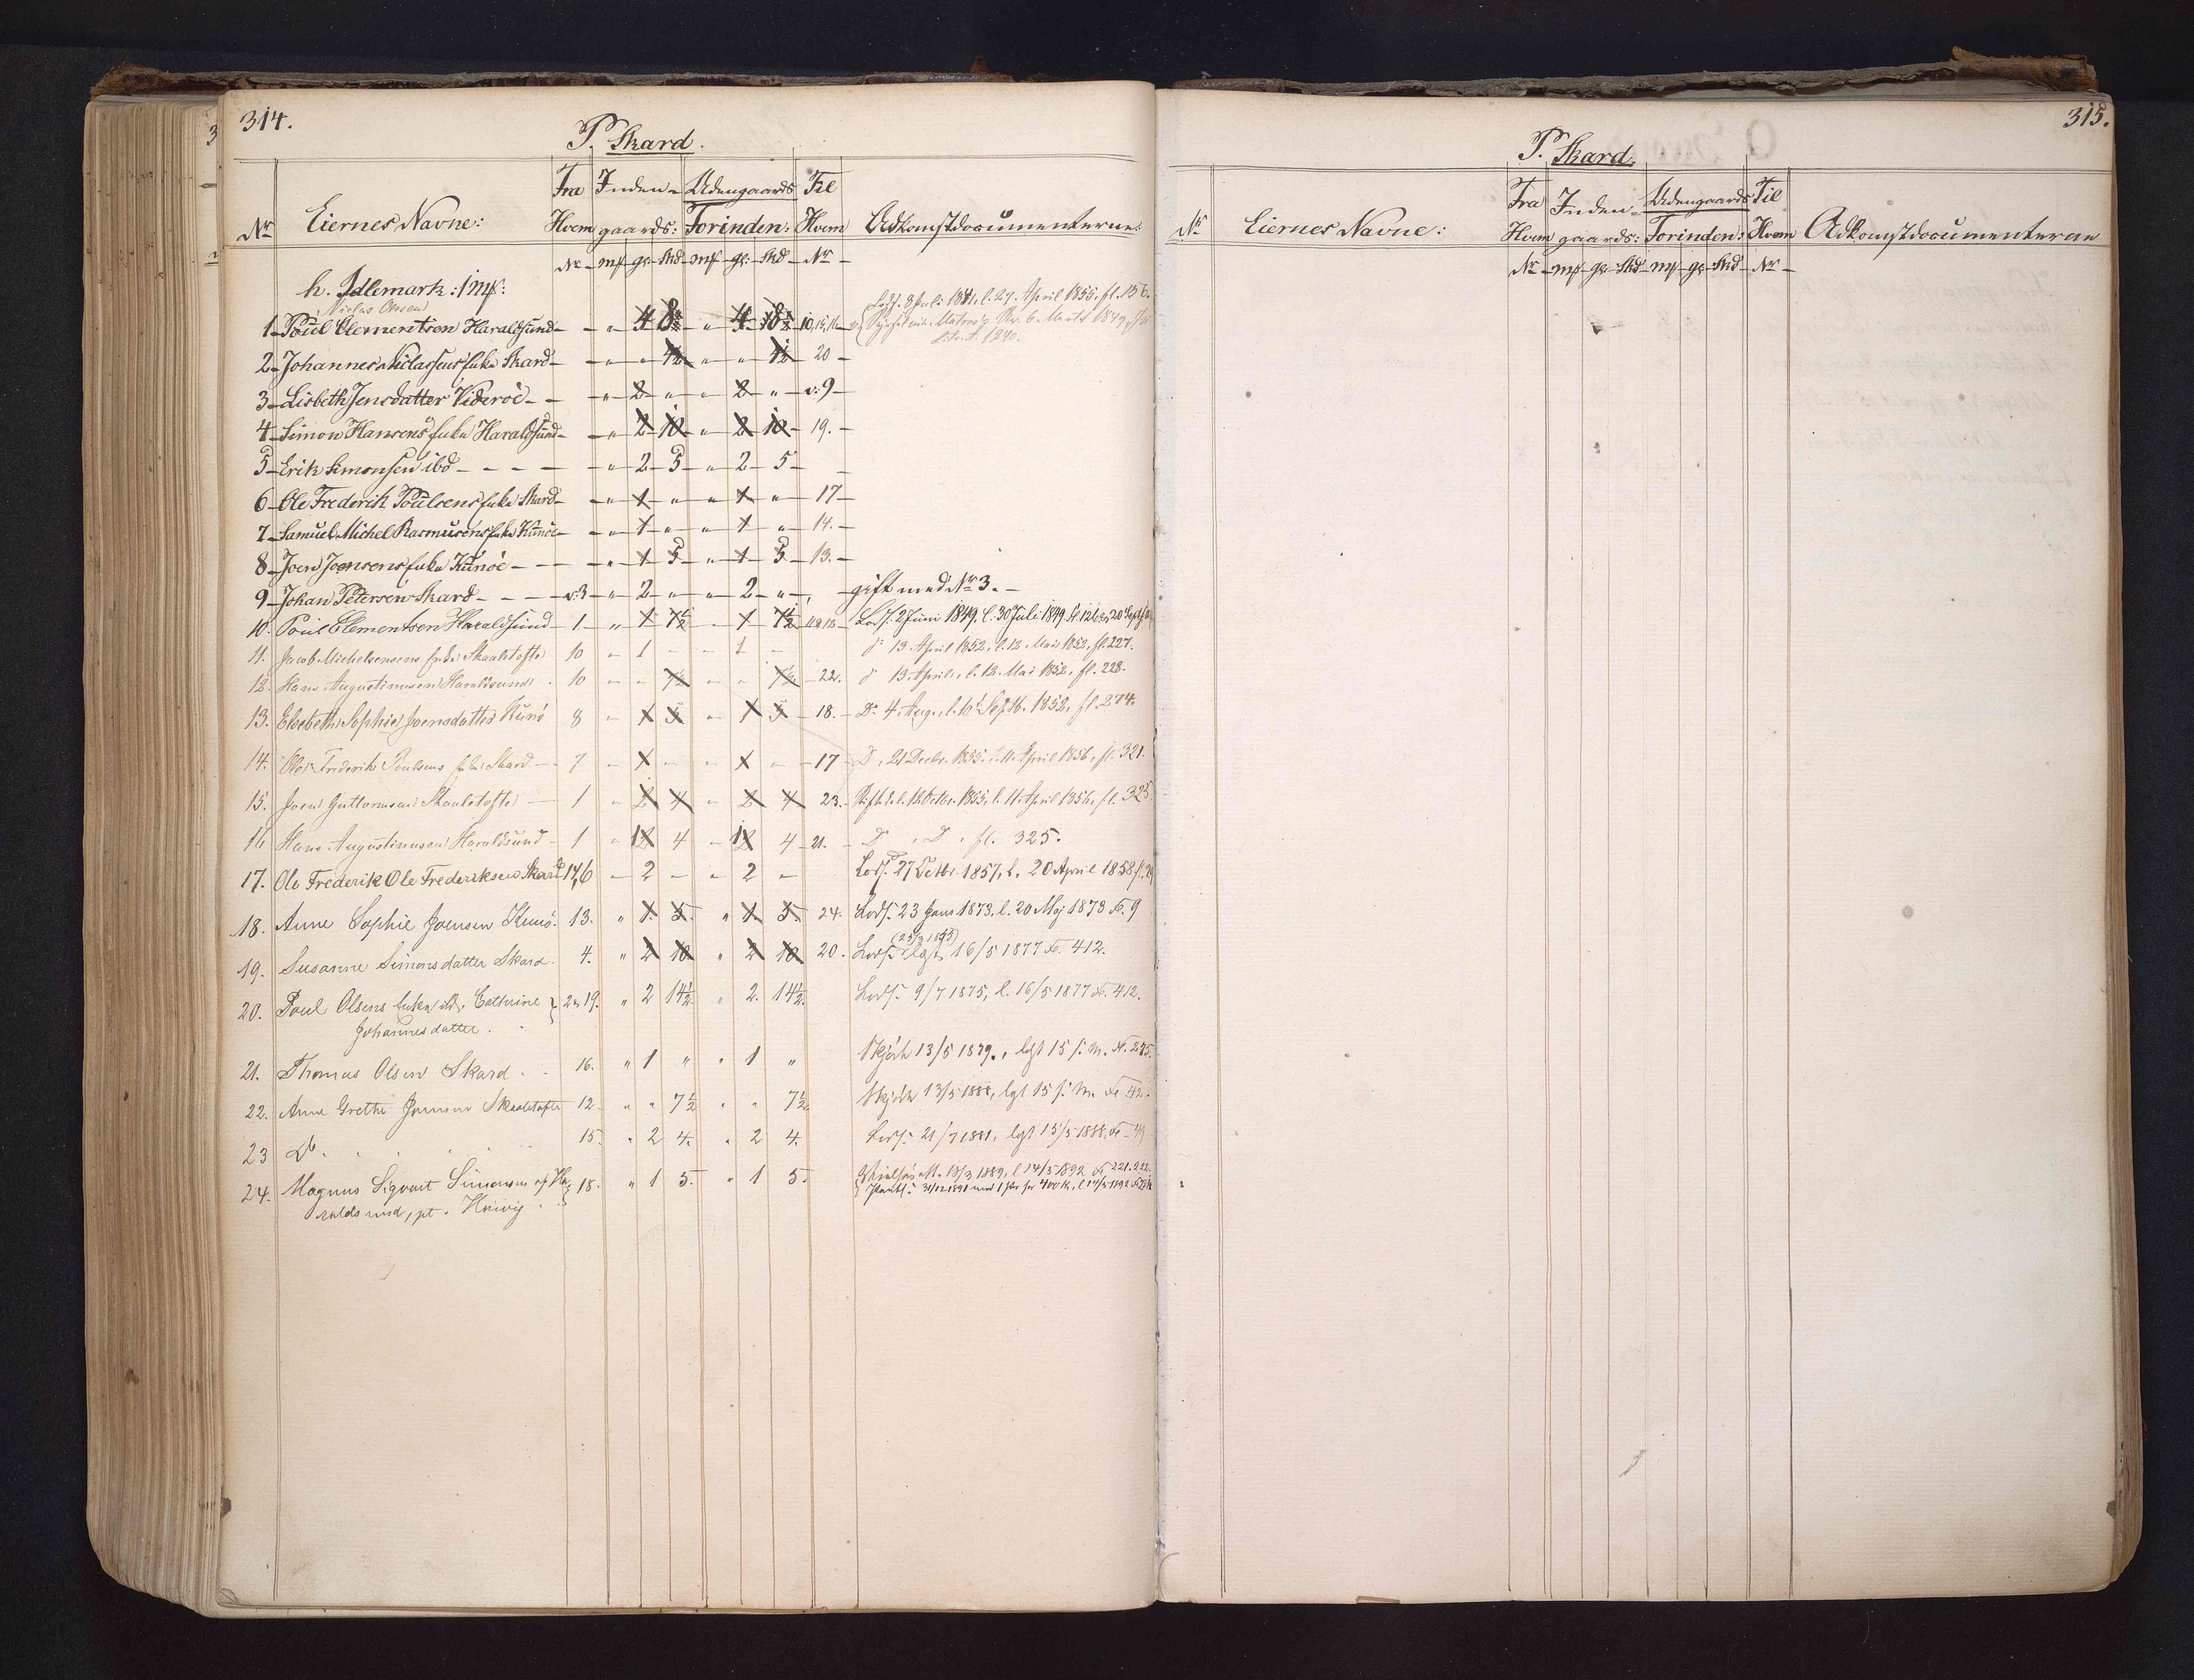 314.
P. Skard.
Nr Eiernes Navne: Fra Hvem Inden-gaards: Udengaards Forinden: Til Hvem Adkomstdocumenterne:
Nr mk gr. Skd mk gr. Skd Nr
h. Idlemark: 1 mk:
Niclas Olesen
1 Poul Clementsen Haraldsund 4 8 4 8 10, 15, 16
2 Johannes Niclassens Enke Skard 4½ 4½ 20
3 Lisbeth Jensdatter Viderøe 2 " 2 " v: 9
4 Simon Hansens Enke Haraldsund 2 10 " 2 10 19.
5 Erik Simonsen ibd 2 5 " 2 5
6 Ole Frederik Poulsens Enke Skard 1 " " 1 " 17
7 Samuel Michel Rasmusens Enke Kunøe 1 " " 1 " 14.
8 Joen Joensens Enke Kunøe 1 5 " 1 5 13.
9 Johan Petersen Skard v: 3 " 2 " " 2 " gift med Nr 3.
10. Poul Clementsen Haraldsund 1 " 1 7½ 1 7½ 11 & 12 Lods. 2 Juni 1849. l. 30 Juli 1849
11. Jacob Michelsensens Enke Skaaletofte 10 1 1 do 13 April 1852, l. 12 Mai 1852, fl. 227.
12. Hans Augustinusen Haraldsund 10 7½ 7½ 22. do 13 April, l. 12 Mai 1852, fl. 228.
13. Elsebeth Sophie Joensdatter Kunø 8 1 5 1 5 18. Do 4 Aug., l. 16 Sept. 1852, fl. 274.
14. Ole Friderik Poulsens Enke Skard 7 1 1 17 D. 21 Decbr. 1855, l. 11 April 1856, fl. 321.
15. Joen Guttormsen Skaaletofte 1 2 4 2 4 23. Skifte l. 12 Octbr. 1855, l. 11 April 1856, fl. 325
16 Hans Augustinusen Haraldsund 1 1 4 1 4 21. D , D , fl. 325.
17. Ole Frederik Ole Frederiksen Skard 14, 6 2 2 Lods. 27 Octbr. 1857, l. 20 April 1858
18. Anne Sophie Joensen Kunø. 13. " 1. 5. " 1. 5. 24. Lods. 23 Janr 1873. l. 20 Maj 1873 Fo. 9
19. Susanne Simonsdatter Skard. 4. " 2 10 " 2 10 20. Lods. lgst. 16/5 1877 Fo. 412.
20. Poul Olsens Enke Johannesdatter. 2 & 19. " 2 14½ " 2. 14½. Lods. 9/7 1875, l. 16/5 1877 Fo. 412.
21. Thomas Olsen Skard. 16. " 1 " " 1 " Skjøde 13/5 1879., lgst 15 s. M. Fo. 275.
22. Anne Grethe Joensen Skaaletofte 12 " " 7½ " " 7½ Skjøde 13/5 1888, lgt 15 s. M. Fo 42.
23 Do. 15. " 2 4. " 2 4. Lods. 21/7 1881, lgt 15/5 1888, Fo. 49
24. Magnus Sigvart Simonsen af Haraldsund, pt. Hvivig 18. " 1 5. " 1 5. 13/3 1889, l. 14/5 1892 Fo. 221. 222.
315.
P. Skard.
Nr Eiernes Navne: Fra Hvem Inden-gaards: Udengaards Forinden: Til Hvem Adkomstdocumenterne
Nr mk gr. Skd mk gr. Skd Nr